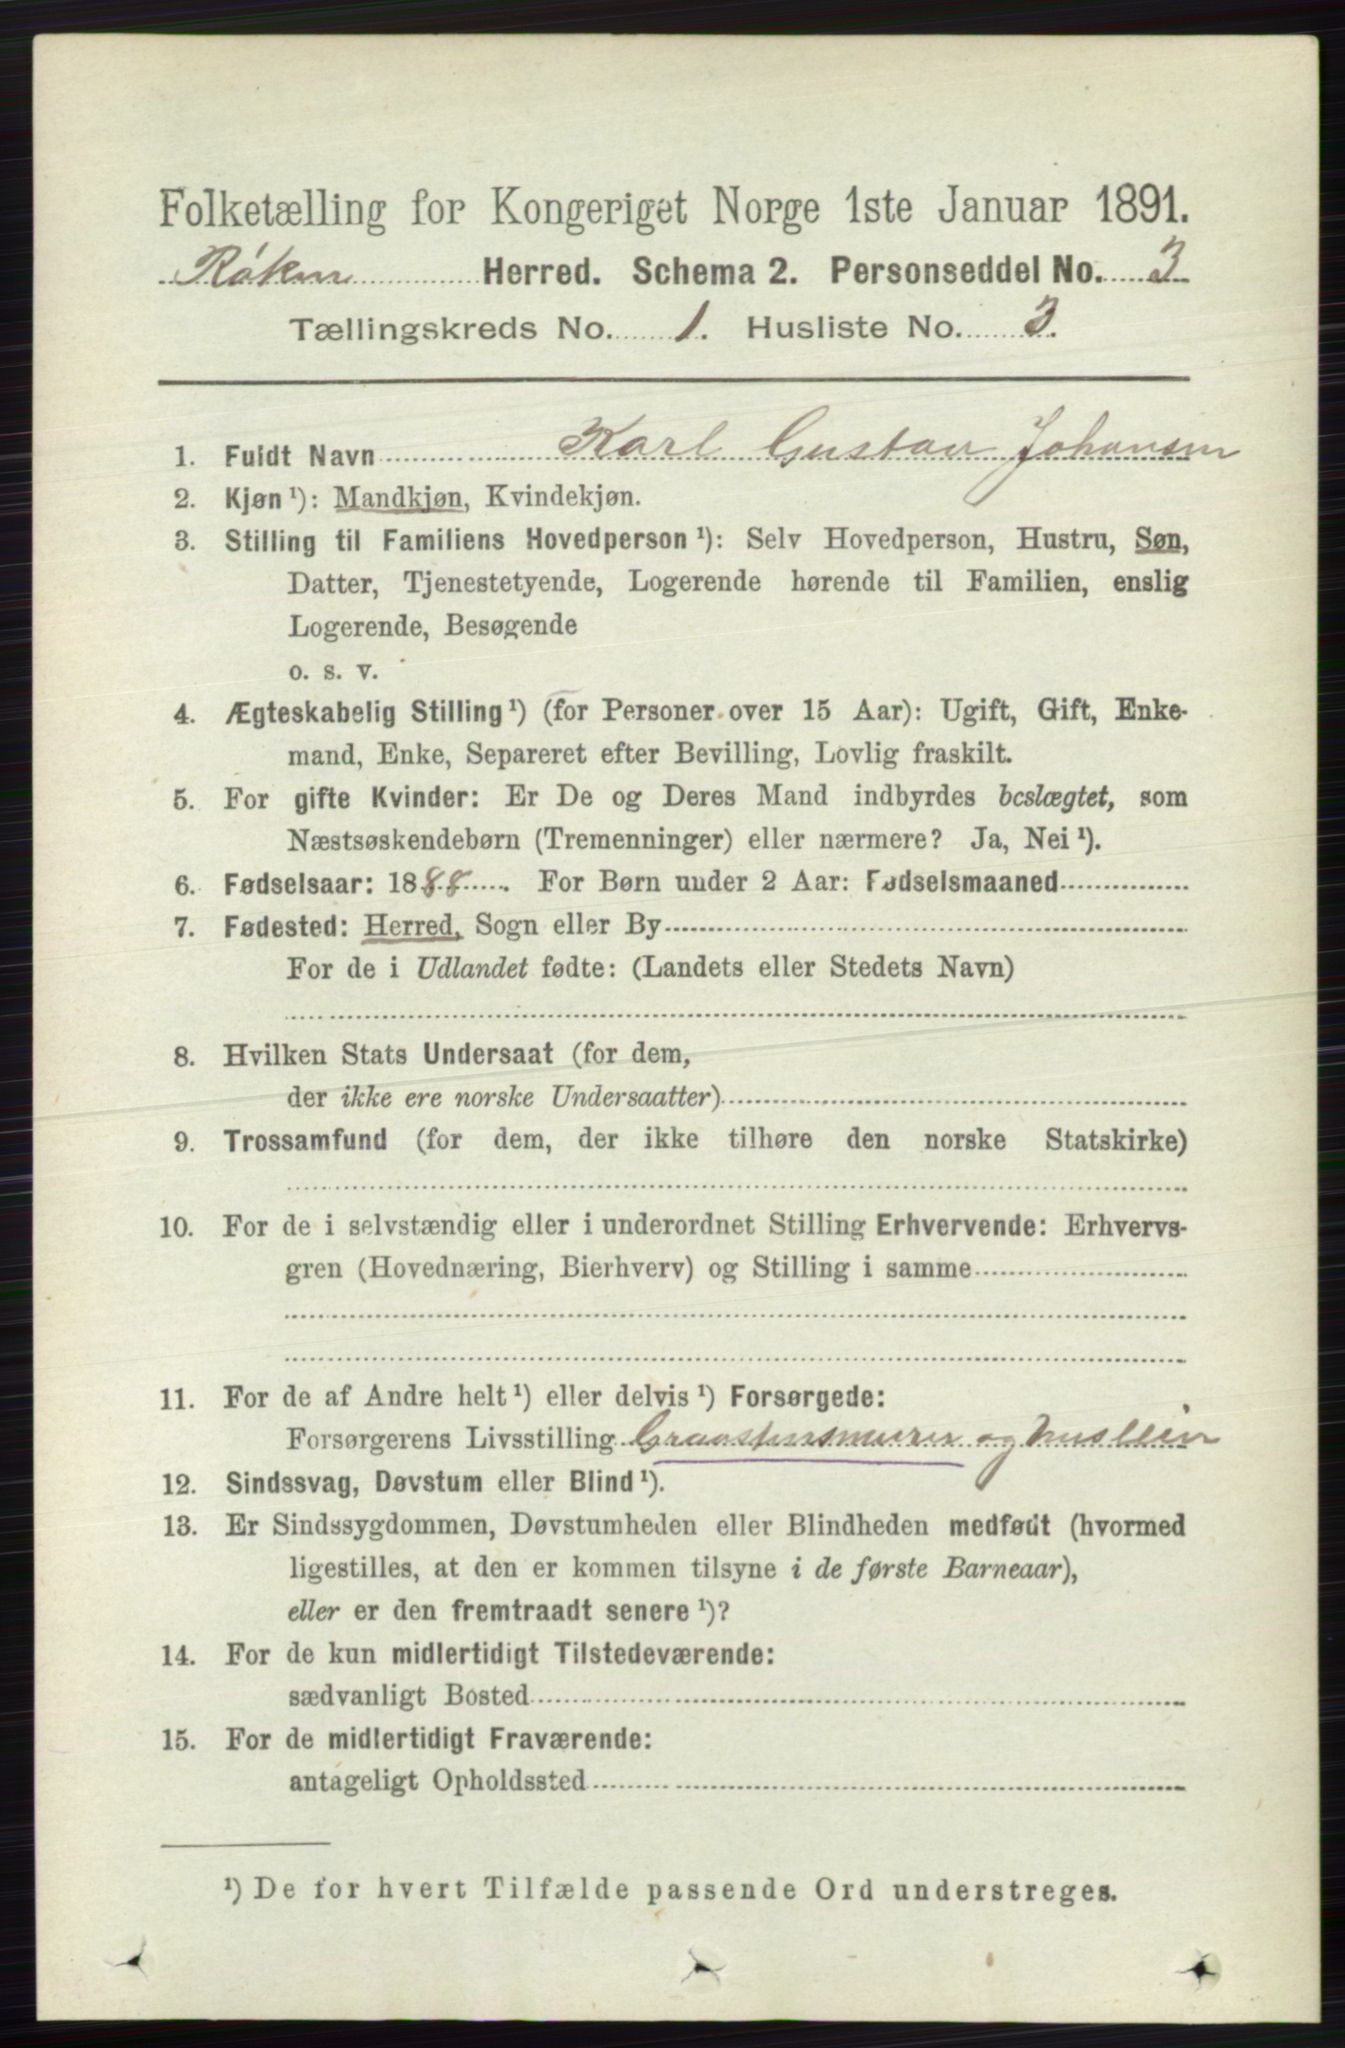 Folketælling for Kongeriget Norge 1ste Januar 1891.
Røken Herred. Schema 2. Personseddel No. 3
Tællingskreds No. 1. Husliste No. 3.
1. Fuldt Navn Karl Gustav Johansen
2. Kjøn¹): Mandkjøn, Kvindekjøn.
3. Stilling til Familiens Hovedperson¹): Selv Hovedperson, Hustru, Søn,
Datter, Tjenestetyende, Logerende hørende til Familien, enslig
Logerende, Besøgende
o. s. v.
4. Ægteskabelig Stilling¹) (for Personer over 15 Aar): Ugift, Gift, Enke-
mand, Enke, Separeret efter Bevilling, Lovlig fraskilt.
5. For gifte Kvinder: Er De og Deres Mand indbyrdes beslægtet, som
Næstsøskendebørn (Tremenninger) eller nærmere? Ja, Nei¹).
6. Fødselsaar: 1888. For Børn under 2 Aar: Fødselsmaaned
7. Fødested: Herred, Sogn eller By
For de i Udlandet fødte: (Landets eller Stedets Navn)
8. Hvilken Stats Undersaat (for dem,
der ikke ere norske Undersaatter)
9. Trossamfund (for dem, der ikke tilhøre den norske Statskirke)
10. For de i selvstændig eller i underordnet Stilling Erhvervende: Erhvervs-
gren (Hovednæring, Bierhverv) og Stilling i samme
11. For de af Andre helt¹) eller delvis¹) Forsørgede:
Forsørgerens Livsstilling Graastensmurer og Huseier
12. Sindssvag, Døvstum eller Blind¹).
13. Er Sindssygdommen, Døvstumheden eller Blindheden medfødt (hvormed
ligestilles, at den er kommen tilsyne i de første Barneaar),
eller er den fremtraadt senere¹)?
14. For de kun midlertidigt Tilstedeværende:
sædvanligt Bosted
15. For de midlertidigt Fraværende:
antageligt Opholdssted
¹) De for hvert Tilfælde passende Ord understreges.